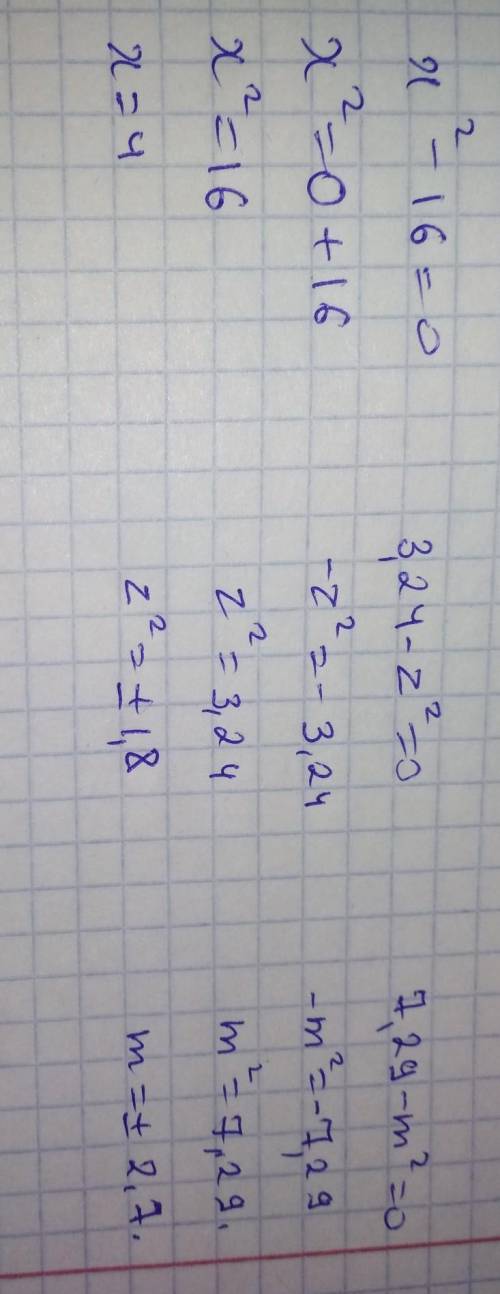 x² - 16 = 0
x² = 0 + 16
x² = 16
x = 4
3,24 - z² = 0
-z² = - 3,24
z² = 3,24
z² = ± 1,8
7,29 - m² = 0
-m² = -7,29
m² = 7,29.
m = ± 2,7.